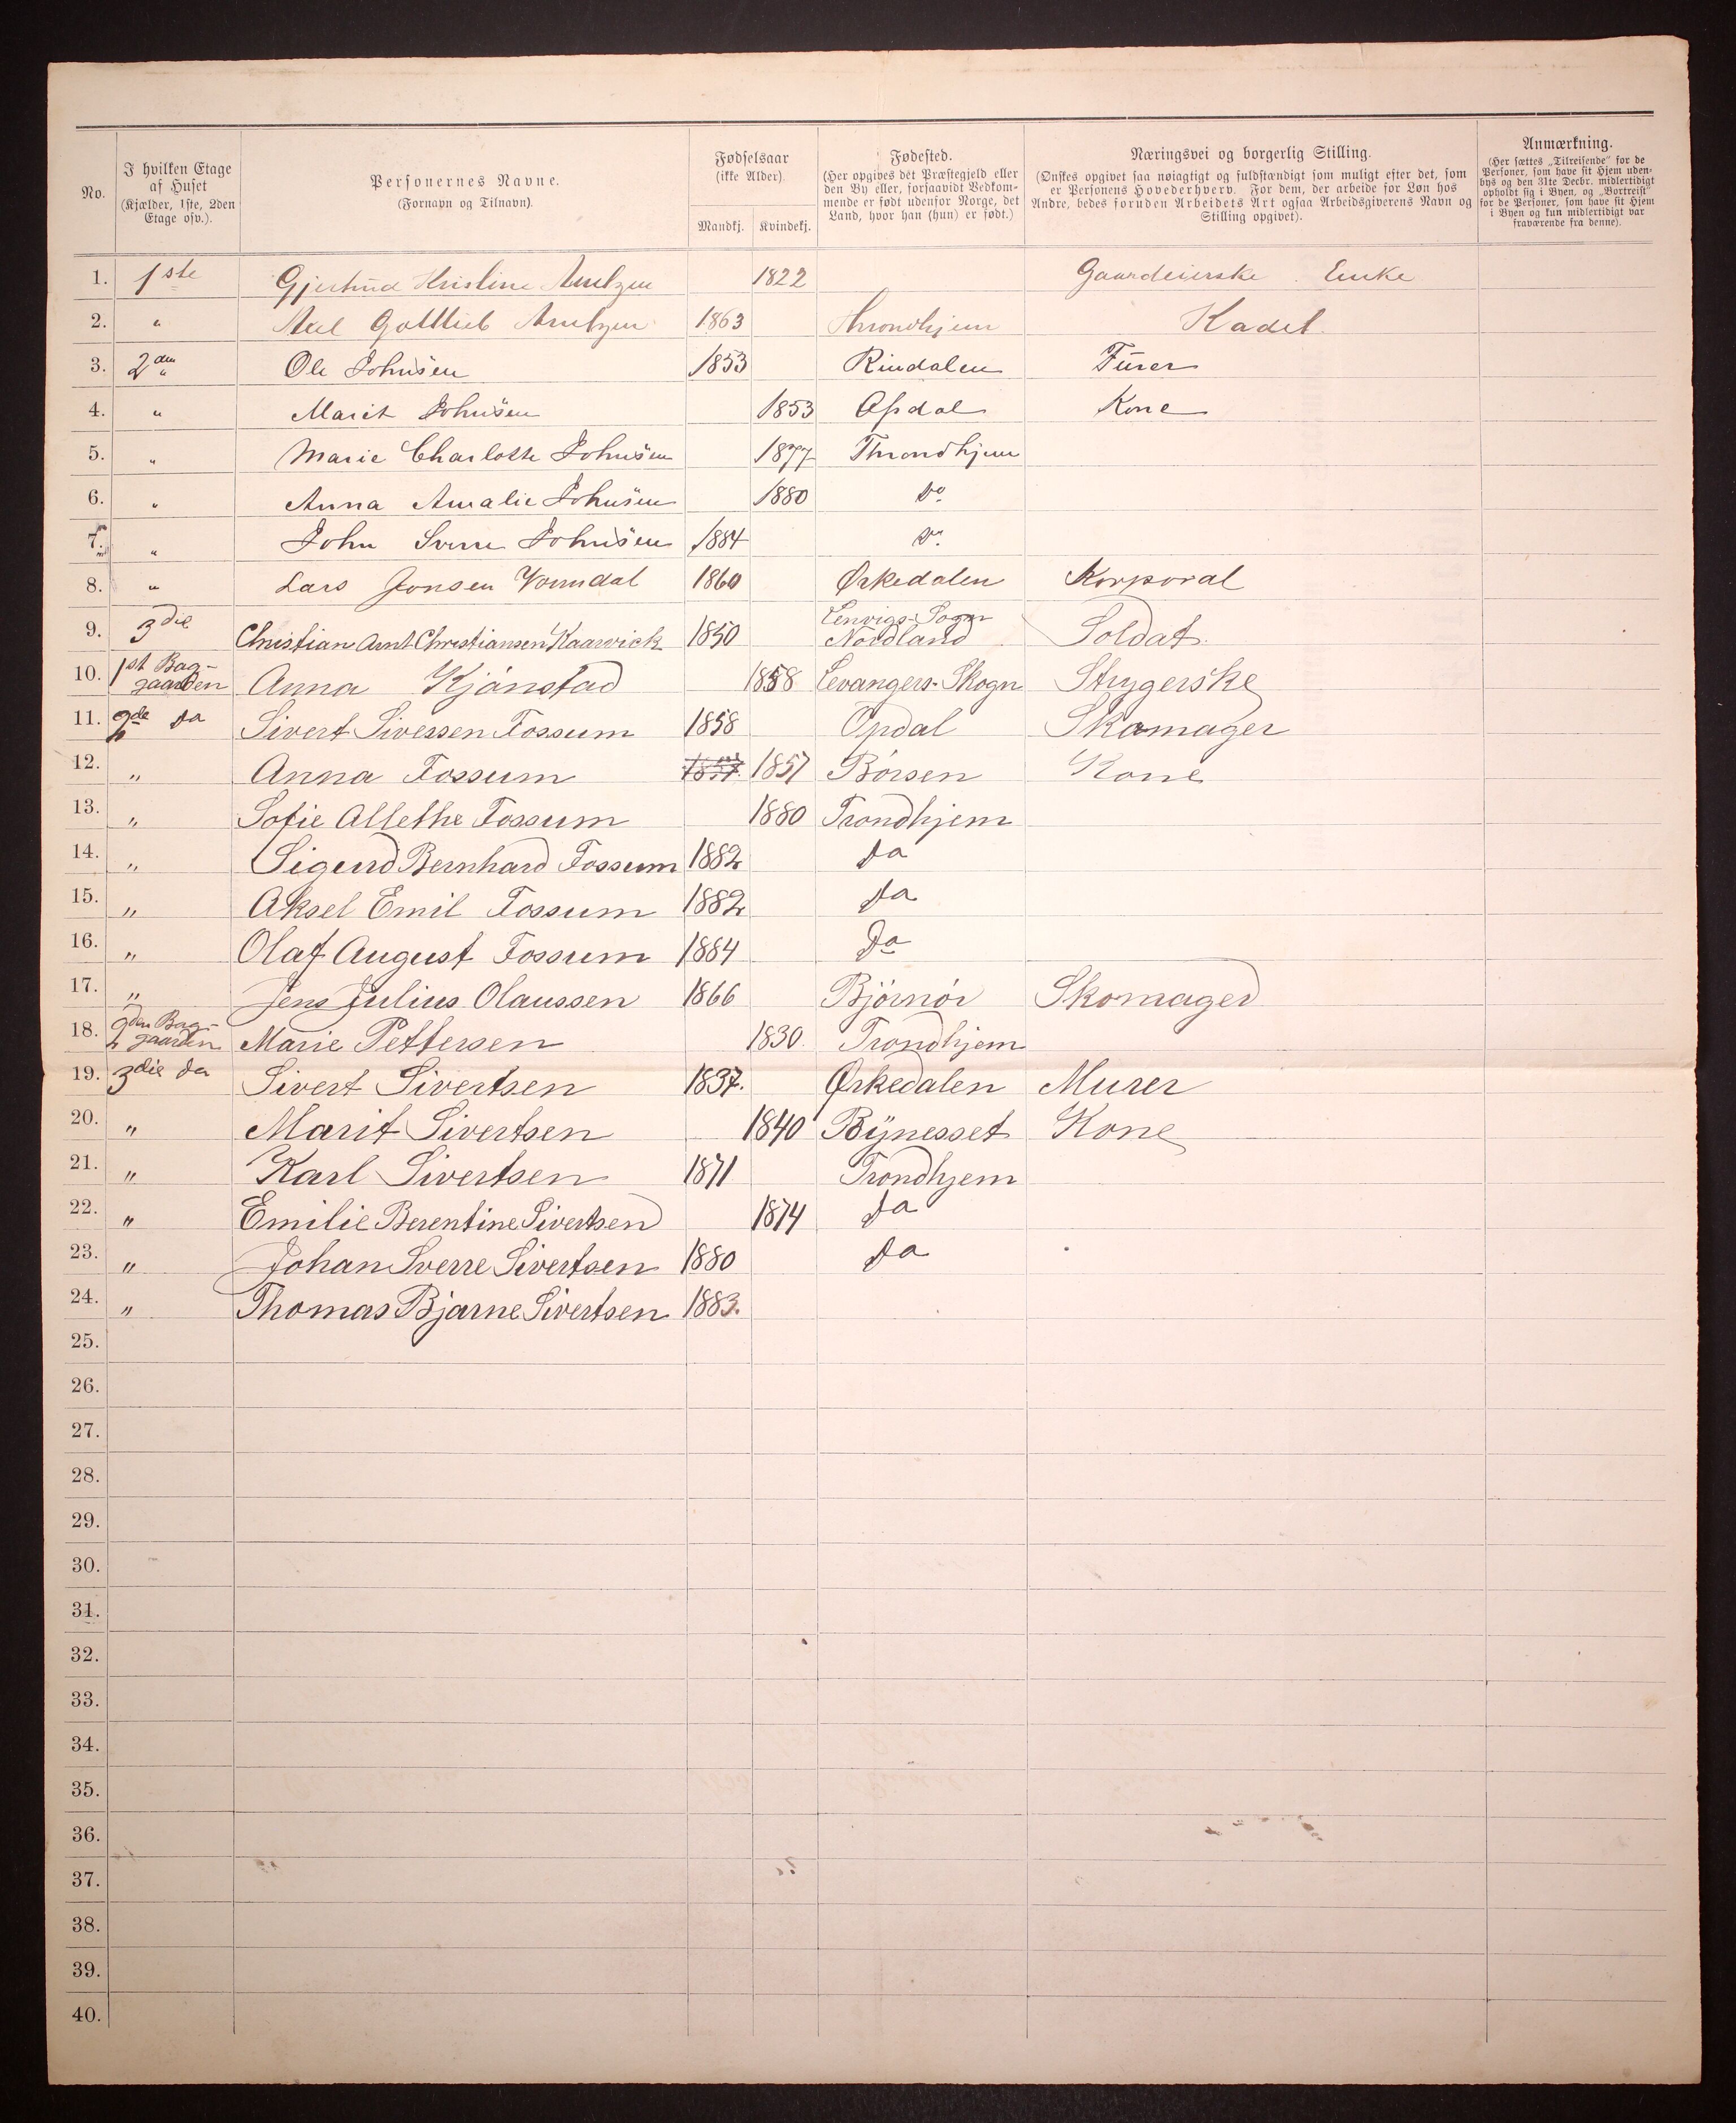 No.
I hvilken Etage
af Huset
(Kjælder, 1ste, 2den
Etage osv.).
Personernes Navne.
(Fornavn og Tilnavn).
Fødselsaar
(ikke Alder).
Mandkj. Kvindekj.
Fødested.
(Her opgives det Præstegjeld eller
den By eller, forsaavidt Vedkom-
mende er født udenfor Norge, det
Land, hvor han (hun) er født.)
Næringsvei og borgerlig Stilling.
(Ønskes opgivet saa nøiagtigt og fuldstændigt som muligt efter det, som
er Personens Hovederhverv. For dem, der arbeide for Løn hos
Andre, bedes foruden Arbeidets Art ogsaa Arbeidsgiverens Navn og
Stilling opgivet).
Anmærkning.
(Her sættes „Tilreisende” for de
Personer, som have sit Hjem uden-
bys og den 31te Decbr. midlertidigt
opholdt sig i Byen, og „Bortreist”
for de Personer, som have sit Hjem
i Byen og kun midlertidigt var
fraværende fra denne).
1. 1ste Gjertrud Kristine Arntzen 1822 Gaardeierske Enke
2. " Axel Gottlieb Arntzen 1863 Throndhjem Kadet
3. 2den " Ole Johnsen 1853 Rindalen Furer
4. " Marit Johnsen 1853 Opdal Kone
5. " Marie Charlotte Johnsen 1877 Throndhjem
6. " Anna Amalie Johnsen 1880 Do
7. " John Sverre Johnsen 1884 Do
8. " Lars Jonsen Vormdal 1860 Ørkedalen Korporal
9. 3die Christian Arnt Christiansen Kaarvick 1850 Lenvigs-Sogn Nordland Soldat
10. 1st Bag-gaarden Anna Kjönstad 1858 Levangers-Skogn Strygerske
11. 2de Do Sivert Siverssen Fossum 1858 Opdal Skomager
12. " Anna Fossum 1857 1857 Börsen Kone
13. " Sofie Allethe Fossum 1880 Trondhjem
14. " Sigurd Bernhard Fossum 1882 Do
15. " Aksel Emil Fossum 1882 Do
16. " Olaf August Fossum 1884 Do
17. " Jens Julius Olaussen 1866 Björnör Skomager
18. 2den Bag-gaarden Marie Pettersen 1830 Trondhjem
19. 3die Do Sivert Sivertsen 1837. Ørkedalen Murer
20. " Marit Sivertsen 1840 Bÿnesset Kone
21. " Karl Sivertsen 1871 Trondhjem
22. " Emilie Berentine Sivertsen 1874 Do
23. " Johan Sverre Sivertsen 1880 Do
24. " Thomas Bjarne Sivertsen 1883.
25.
26.
27.
28.
29.
30.
31.
32.
33.
34.
35.
36.
37.
38.
39.
40.